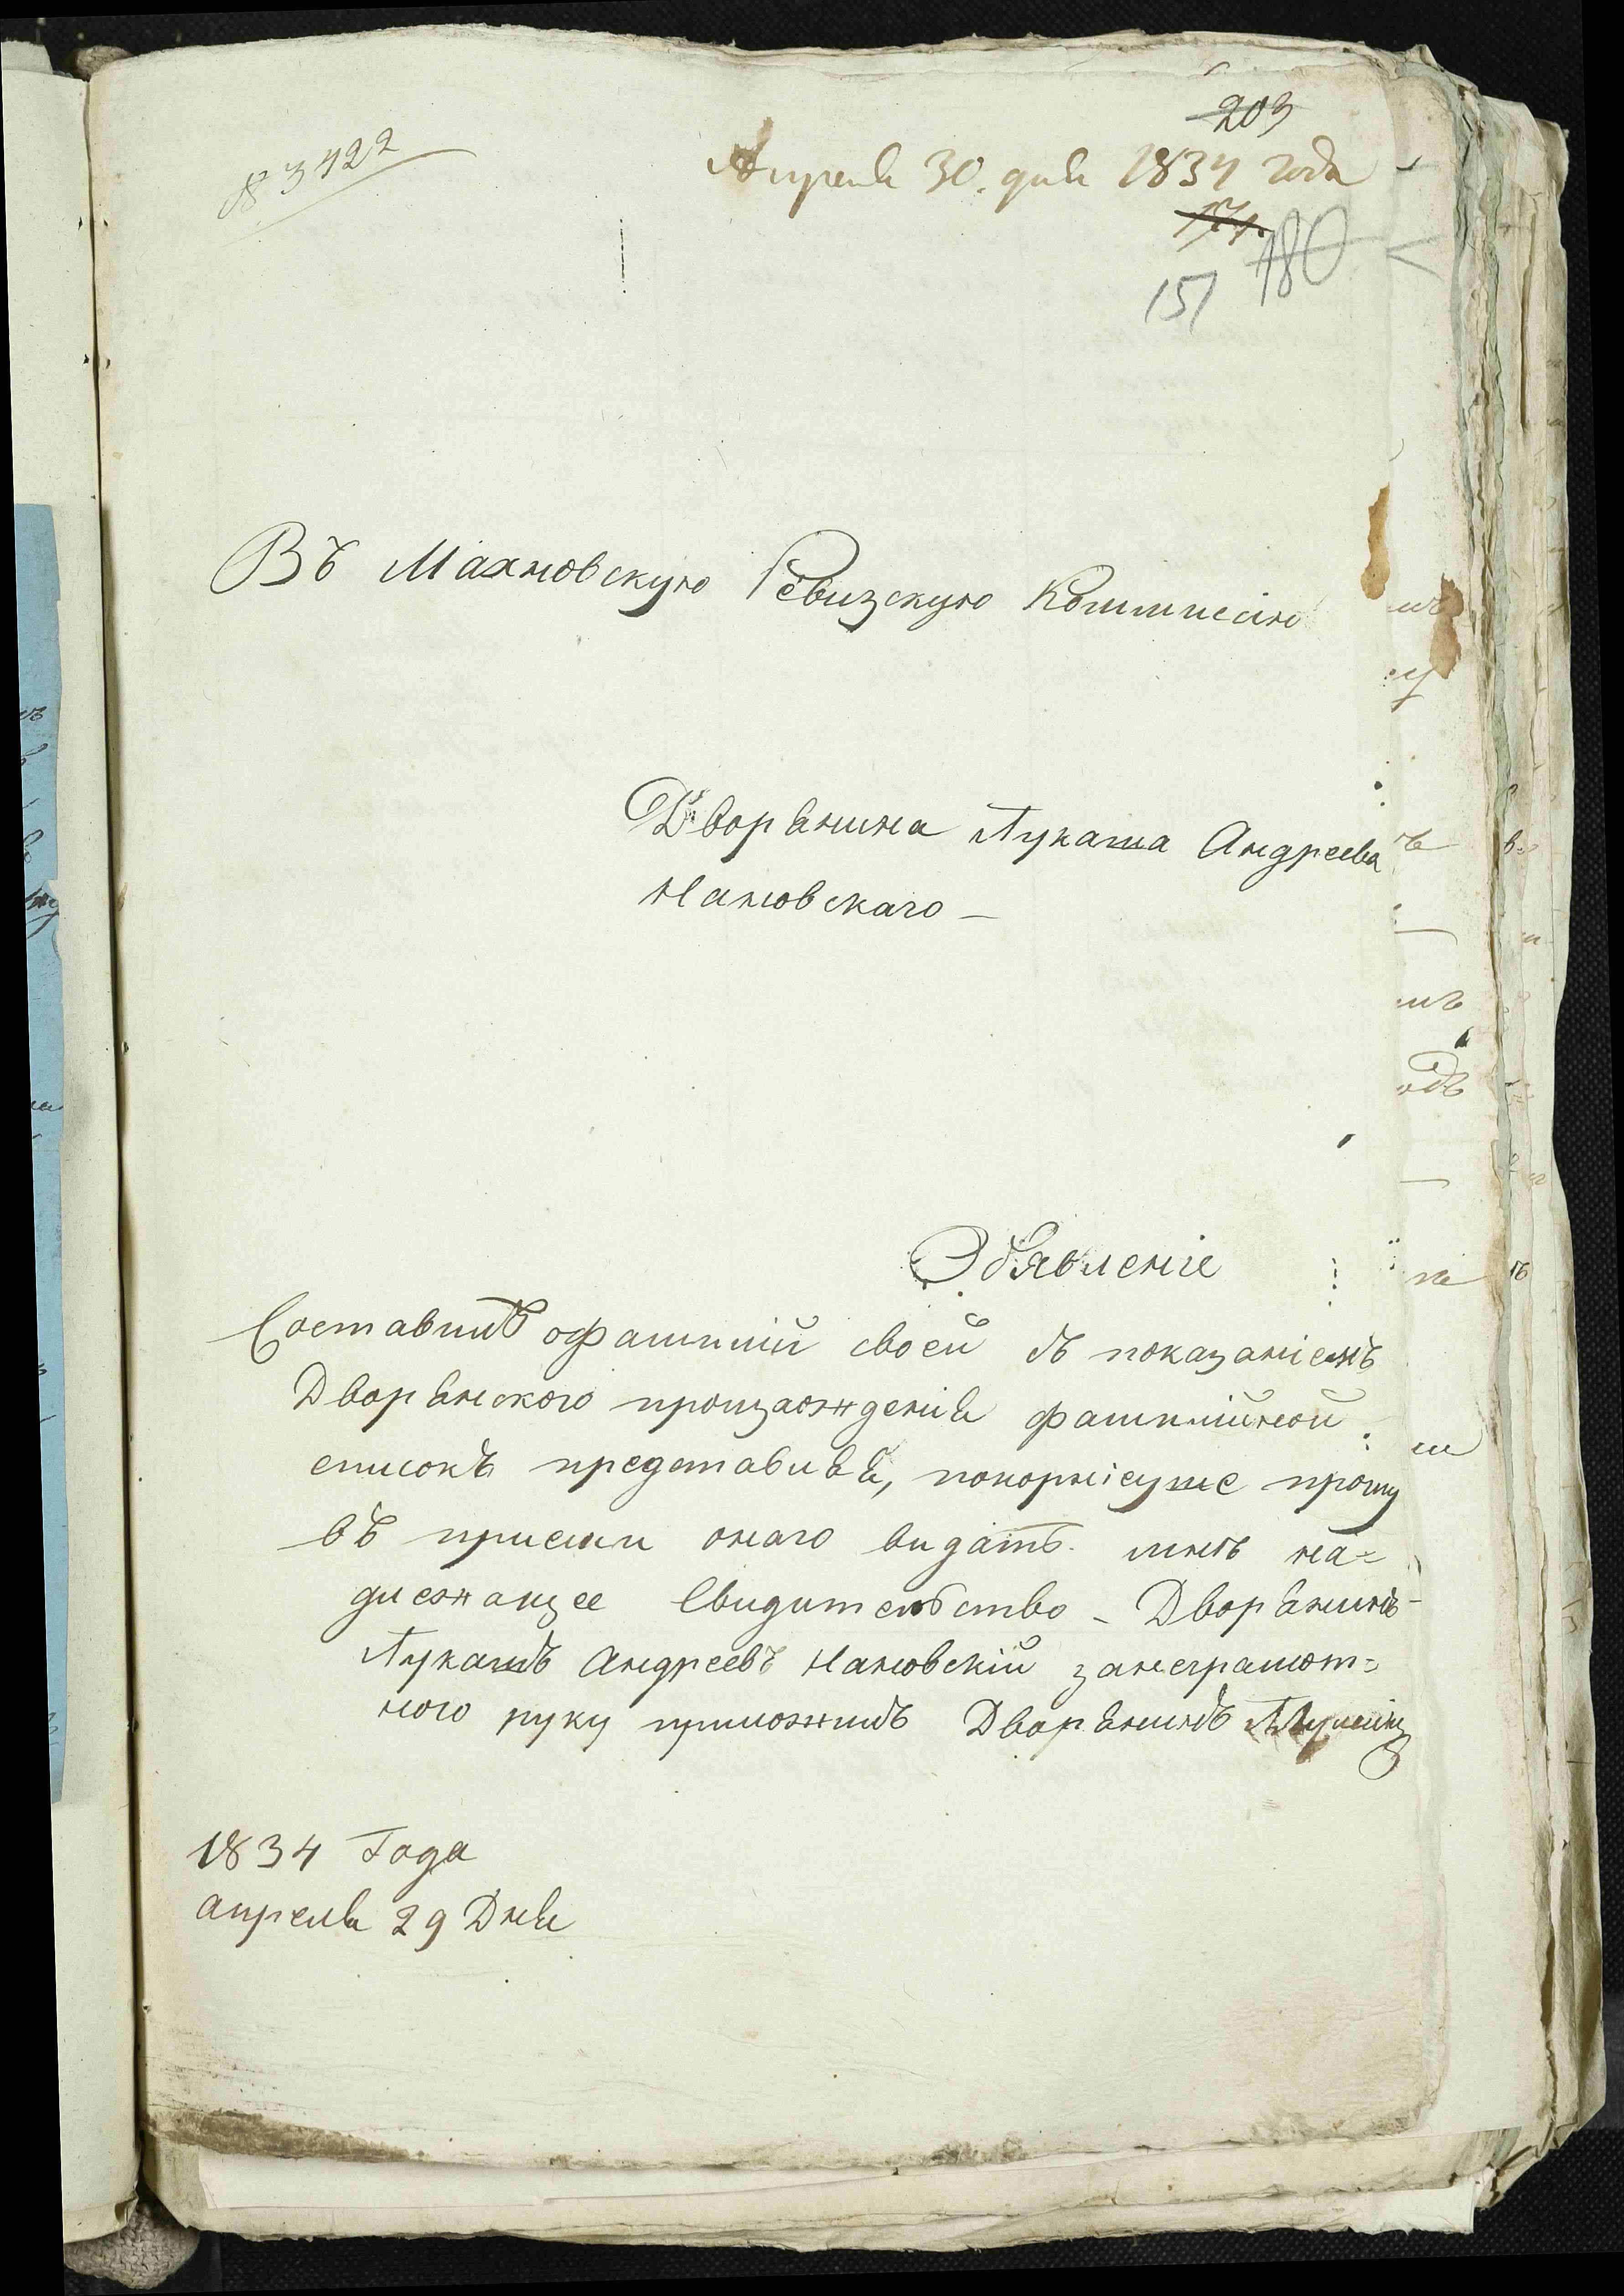 83422
203
Апреля 30. дня 1834 года
171.
180
151
Въ Махновскую Ревизскую Коммисію
Дворянина Лукаша Андреева
Нановскаго —
Обявленіе
Составивъ офамилій своей съ показаніемъ
Дворянского произхожденія фамилійной
списокъ представивъ, покорнісуше прошу
въ приеми онаго видать мнѣ на=
длежащее Свидительство - Дворянинъ
Лукашъ Андреевъ Нановскій занеграмот=
ного руку приложилъ Дворянинъ
1834 Года
апреля 29 Дня